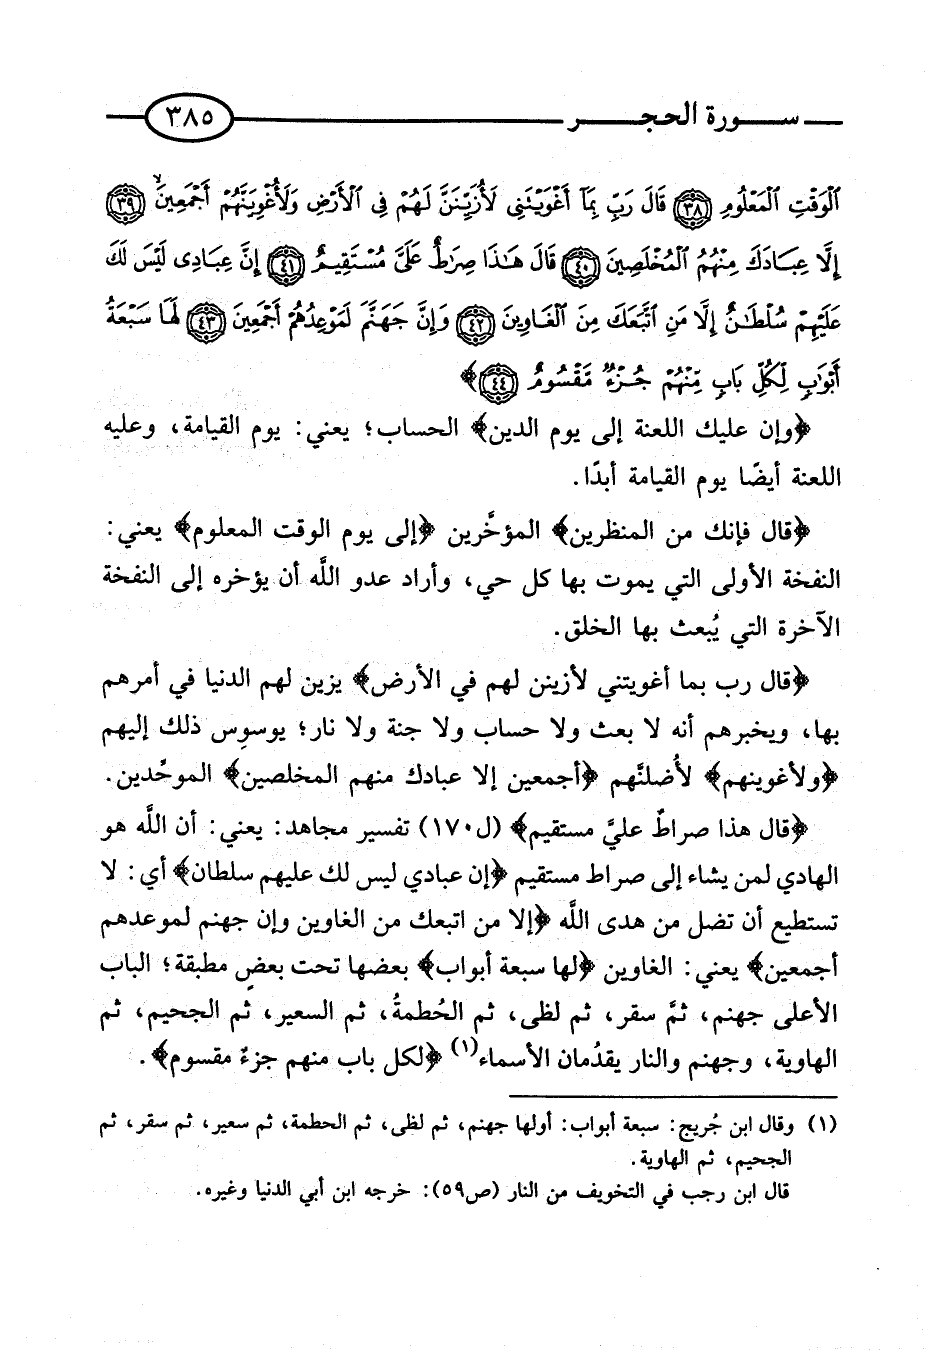 سورة الحجر ٣٨٥
ٱلۡوَقۡتِ ٱلۡمَعۡلُومِ ﴿٣٨﴾ قَالَ رَبِّ بِمَآ أَغۡوَيۡتَنِي لَأُزَيِّنَنَّ لَهُمۡ فِي ٱلۡأَرۡضِ وَلَأُغۡوِيَنَّهُمۡ أَجۡمَعِينَ ﴿٣٩﴾
إِلَّا عِبَادَكَ مِنۡهُمُ ٱلۡمُخۡلَصِينَ ﴿٤٠﴾ قَالَ هَٰذَا صِرَٰطٌ عَلَيَّ مُسۡتَقِيمٌ ﴿٤١﴾ إِنَّ عِبَادِي لَيۡسَ لَكَ
عَلَيۡهِمۡ سُلۡطَٰنٌ إِلَّا مَنِ ٱتَّبَعَكَ مِنَ ٱلۡغَاوِينَ ﴿٤٢﴾ وَإِنَّ جَهَنَّمَ لَمَوۡعِدُهُمۡ أَجۡمَعِينَ ﴿٤٣﴾ لَهَا سَبۡعَةُ
أَبۡوَٰبٖ لِّكُلِّ بَابٖ مِّنۡهُمۡ جُزۡءٞ مَّقۡسُومٌ ﴿٤٤﴾﴾
﴿وإن عليك اللعنة إلى يوم الدين﴾ الحساب؛ يعني: يوم القيامة، وعليه
اللعنة أيضًا يوم القيامة أبدًا.
﴿قال فإنك من المنظرين﴾ المؤخَّرين ﴿إلى يوم الوقت المعلوم﴾ يعني:
النفخة الأولى التي يموت بها كل حي، وأراد عدو اللَّه أن يؤخره إلى النفخة
الآخرة التي يُبعث بها الخلق.
﴿قال رب بما أغويتني لأزينن لهم في الأرض﴾ يزين لهم الدنيا في أمرهم
بها، ويخبرهم أنه لا بعث ولا حساب ولا جنة ولا نار؛ يوسوِس ذلك إليهم
﴿ولأغوينهم﴾ لأُضلنَّهم ﴿أجمعين إلا عبادك منهم المخلصين﴾ الموحِّدين.
﴿قال هذا صراطٌ عليَّ مستقيم﴾ (ل١٧٠) تفسير مجاهد: يعني: أن اللَّه هو
الهادي لمن يشاء إلى صراط مستقيم ﴿إن عبادي ليس لك عليهم سلطان﴾ أي: لا
تستطيع أن تضل من هدى اللَّه ﴿إلا من اتبعك من الغاوين وإن جهنم لموعدهم
أجمعين﴾ يعني: الغاوين ﴿لها سبعة أبواب﴾ بعضها تحت بعضٍ مطبقة؛ الباب
الأعلى جهنم، ثمَّ سقر، ثم لظى، ثم الحُطمةُ، ثم السعير، ثم الجحيم، ثم
الهاوية، وجهنم والنار يقدُمان الأسماء(١) ﴿لكل باب منهم جزءٌ مقسوم﴾.
(١) وقال ابن جُريج: سبعة أبواب: أولها جهنم، ثم لظى، ثم الحطمة، ثم سعير، ثم سقر، ثم
الجحيم، ثم الهاوية.
قال ابن رجب في التخويف من النار (ص٥٩): خرجه ابن أبي الدنيا وغيره.